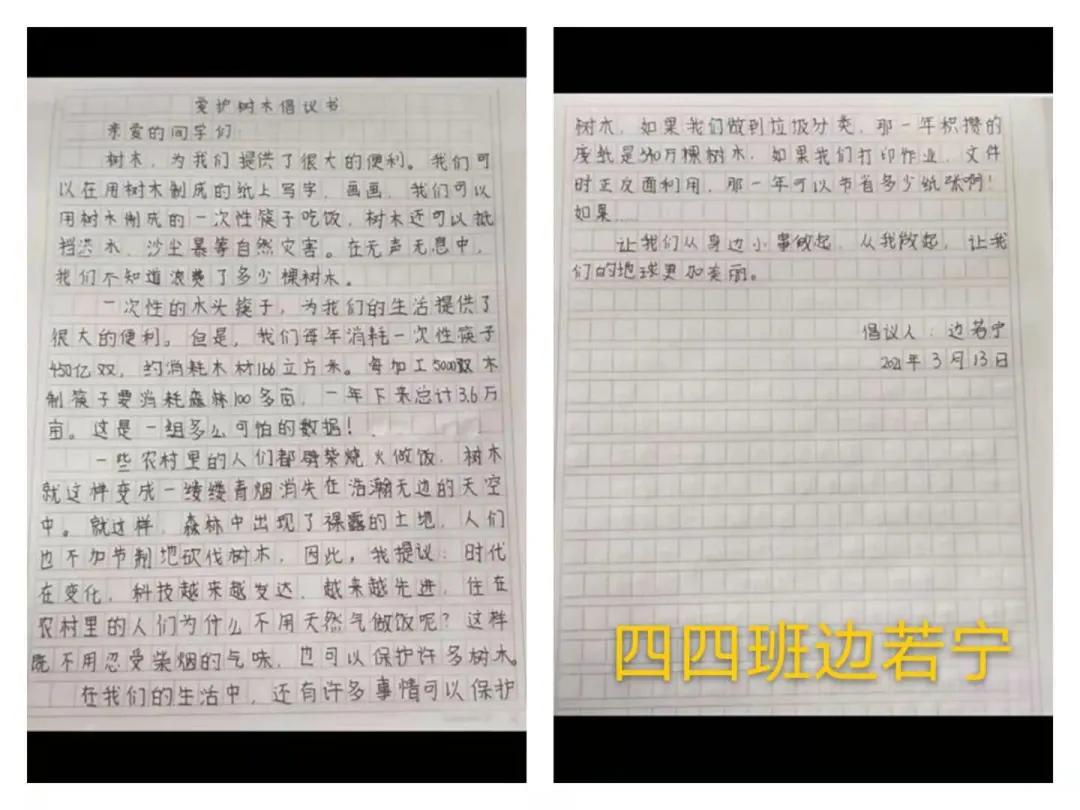 爱护树木倡议书
亲爱的同学们：
树木，为我们提供了很大的便利。我们可
以在用树木制成的纸上写字，画画，我们可以
用树木制成的一次性筷子吃饭，树木还可以抵
挡洪水，沙尘暴等自然灾害。在无声无息中，
我们不知道浪费了多少棵树木。
一次性的木头筷子，为我们的生活提供了
很大的便利。但是，我们每年消耗一次性筷子
450亿双，约消耗木材166立方米。每加工5000双木
制筷子要消耗森林100多亩，一年下来总计3.6万
亩。这是一组多么可怕的数据！
一些农村里的人们都劈柴烧火做饭，树木
就这样变成一缕缕青烟消失在浩瀚无边的天空
中。就这样，森林中出现了裸露的土地，人们
也不加节制地砍伐树木，因此，我提议：时代
在变化，科技越来越发达，越来越先进，住在
农村里的人们为什么不用天然气做饭呢？这样
既不用忍受柴烟的气味，也可以保护许多树木。
在我们的生活中，还有许多事情可以保护
树木，如果我们做到垃圾分类，那一年积攒的
废纸是340万棵树木，如果我们打印作业，文件
时正反面利用，那一年可以节省多少纸张啊！
如果……
让我们从身边小事做起，从我做起，让我
们的地球更加美丽。
倡议人：边若宁
2021年3月13日
四四班边若宁